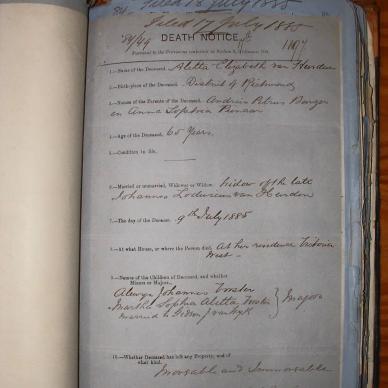 Filed 17 July 1885
DEATH NOTICE
1.—Name of the Deceased, Aletta Elizabeth van
2.—Birth-place of the Deceased, District of Richmond
3.—Names of the Parents of the Deceased, Andries Petrus Burger
en Anna Sophia Pienaar
4.—Age of the Deceased, 65 Years
5.—Condition in life,
6.—Married or unmarried, Widower or Widow, Widow of the late
Johannes Lodewicus van Heerden
7.—The day of the Decease, 9th July 1885
8.—At what House, or where the Person died, At her residence Victoria
West
9.—Names of the Children of Deceased, and whether
Minors or Majors,
Alewyn Johannes
Martha Sophia Aletta
Married to Gideon J van Wyk
Majors
10.—Whether Deceased has left any Property, and of
what kind,
Moveable and Immoveable